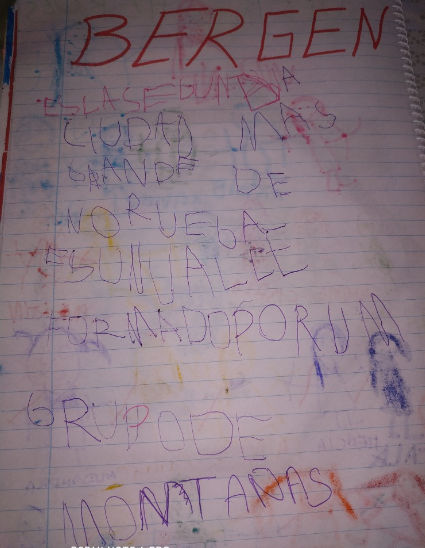 BERGEN
ESLASEGUNDA
CIUDAD MAS
GRANDE DE
NORUEGA
ESUNVALLE
FORMADOPORUM
GRUPODE
MONTAÑAS